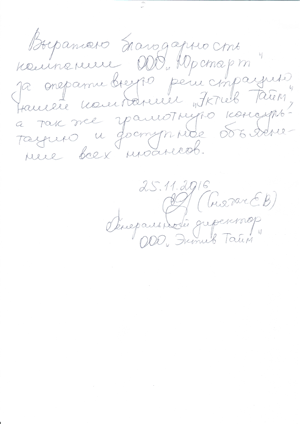 Выражаю благодарность
компании ООО „Юрстарт"
за оперативную регистрацию
нашей компании „Эктив Тайм",
а так же грамотную консуль-
тацию и доступное объясне-
ние всех нюансов.
25.11.2016
Генеральный директор
ООО „Эктив Тайм"